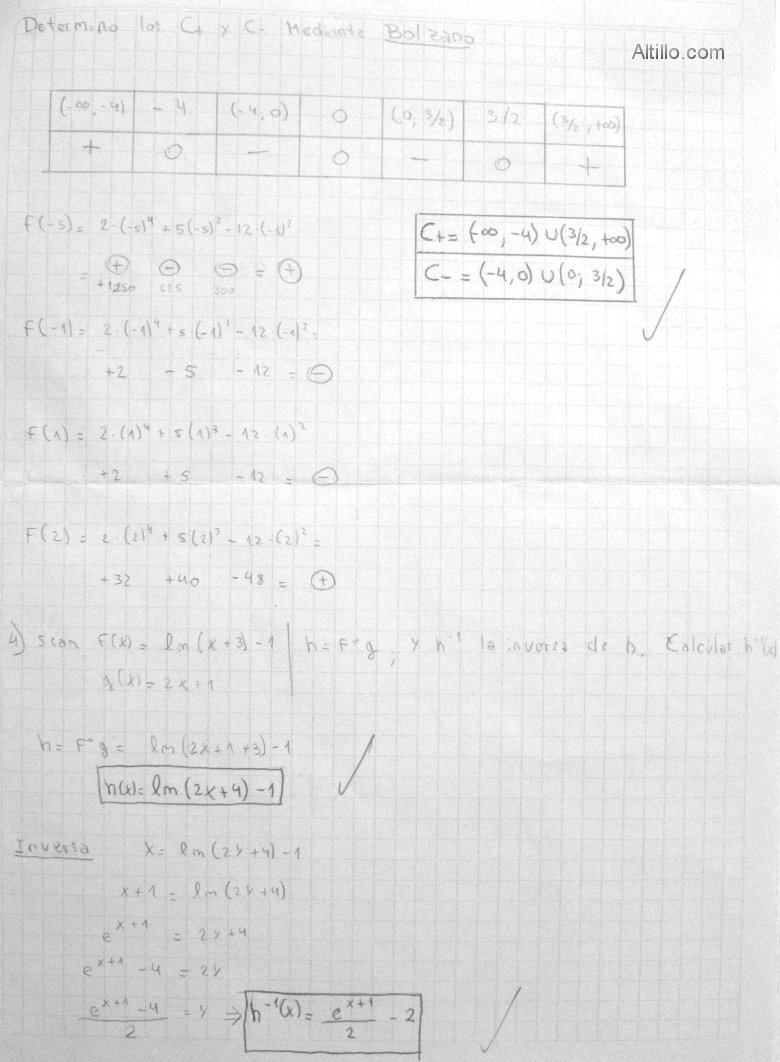 Determino los C+ y C- Mediante Bolzano
Altillo.com
(-∞, -4) | -4 | (-4, 0) | 0 | (0, 3/2) | 3/2 | (3/2, +∞)
+ | 0 | - | 0 | - | 0 | +
f(-5) = 2·(-5)⁴ + 5(-5)³ - 12·(-5)²
= ⊕ ⊖ ⊖ = ⊕
+1250 625 300
C+ = (-∞, -4) ∪ (3/2, +∞)
C- = (-4, 0) ∪ (0; 3/2)
f(-1) = 2·(-1)⁴ + 5·(-1)³ - 12·(-1)² =
+2 - 5 - 12 = ⊖
F(1) = 2·(1)⁴ + 5(1)³ - 12·(1)²
+2 + 5 - 12 = ⊖
F(2) = 2·(2)⁴ + 5(2)³ - 12·(2)² =
+32 +40 -48 = ⊕
4) Sean F(x) = ln(x+3) - 1 | h = F°g ; y h⁻¹ la inversa de h. Calcular h⁻¹(x)
g(x) = 2x+1
h = F°g = ln(2x+1+3) - 1
h(x) = ln(2x+4) - 1
Inversa x = ln(2y+4) - 1
x+1 = ln(2y+4)
e^(x+1) = 2y+4
e^(x+1) - 4 = 2y
(e^(x+1) - 4)/2 = y ⇒ h⁻¹(x) = e^(x+1)/2 - 2